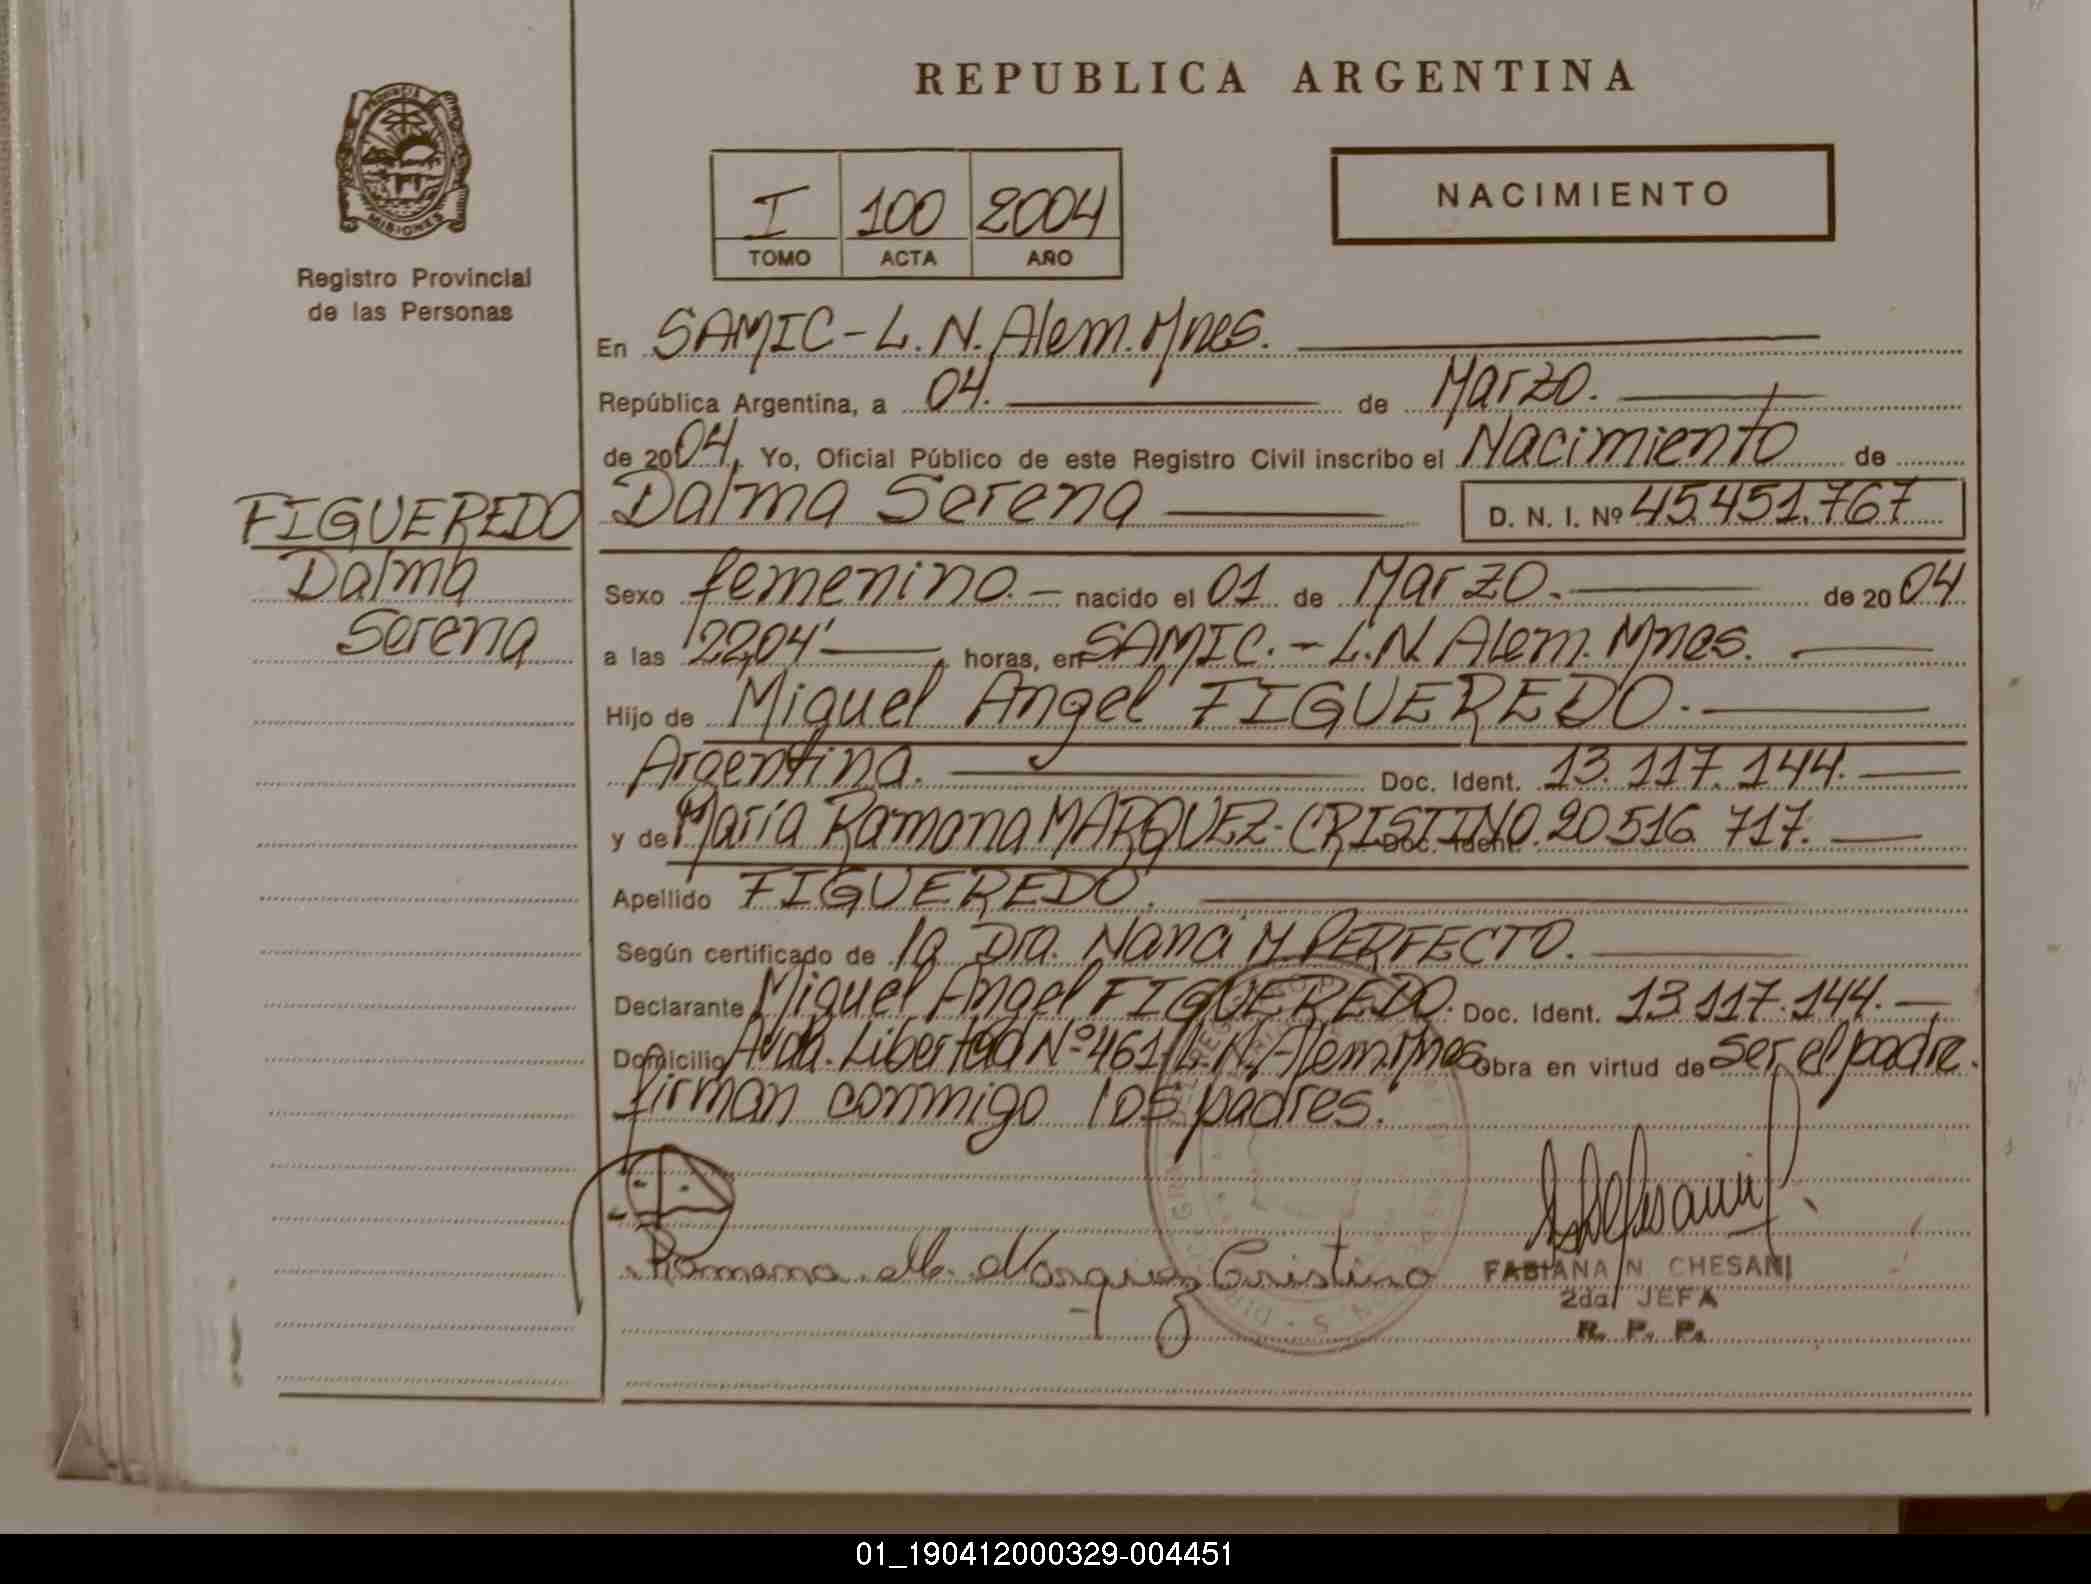 REPUBLICA ARGENTINA
PROVINCIA DE
MISIONES
Registro Provincial
de las Personas
I 100 2004
TOMO ACTA AÑO
NACIMIENTO
En SAMIC - L. N. Alem. Mnes.
República Argentina, a 04. de Marzo.
de 2004, Yo, Oficial Público de este Registro Civil inscribo el Nacimiento de
FIGUEREDO
Dalma
Serena
Dalma Serena D. N. I. Nº 45.451.767
Sexo femenino. nacido el 01 de Marzo. de 2004
a las 22,04' horas, en SAMIC. - L.N. Alem. Mnes.
Hijo de Miguel Angel FIGUEREDO.
Argentina. Doc. Ident. 13.117.144.
y de María Ramona MARQUEZ - CRISTINO. Doc. Ident. 20516 717.
Apellido FIGUEREDO.
Según certificado de la Dra. Nanci M PERFECTO.
Declarante Miguel Angel FIGUEREDO. Doc. Ident. 13.117.144.
Domicilio Avda. Libertad Nº 461. L. N. Alem. Mnes. Obra en virtud de ser el padre.
firman conmigo los padres.
Ramona M. Marquez Cristino
FABIANA N CHESANI
2da. JEFA
R. P. P.
01_190412000329-004451